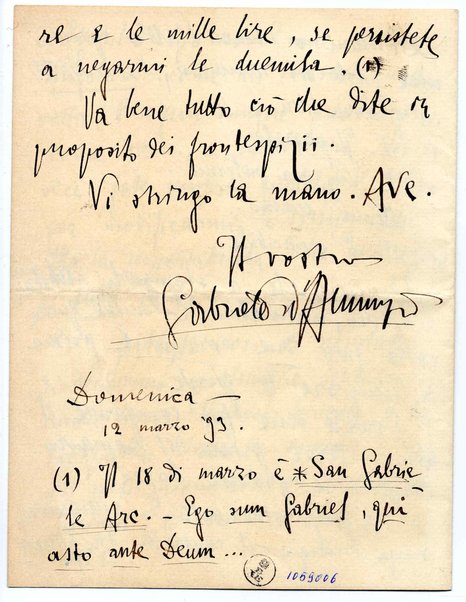 re e le mille lire, se persistete
a negarmi le duemila. (1)
Va bene tutto ciò che dite in
proposito dei frontespizii.
Vi stringo la mano. Ave.
Il vostro
Gabriele d'Annunzio
Domenica —
12 marzo '93.
(1) Il 18 di marzo è * San Gabrie
le Arc. - Ego sum Gabriel, qui
asto ante Deum...
1059006